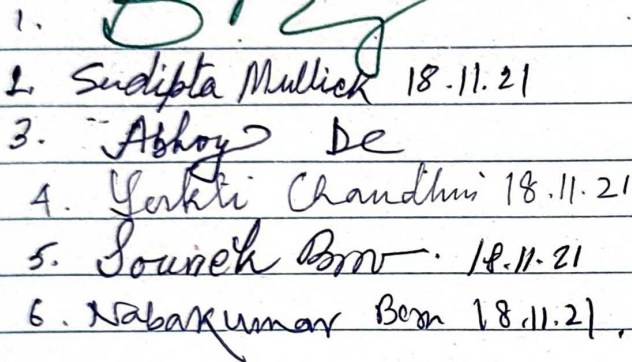 1.
2. Sudipta Mullick 18.11.21
3. Abhoy De
4. Chaudhuri 18.11.21
5. 18.11.21
6. Nabakumar Bera 18.11.21.